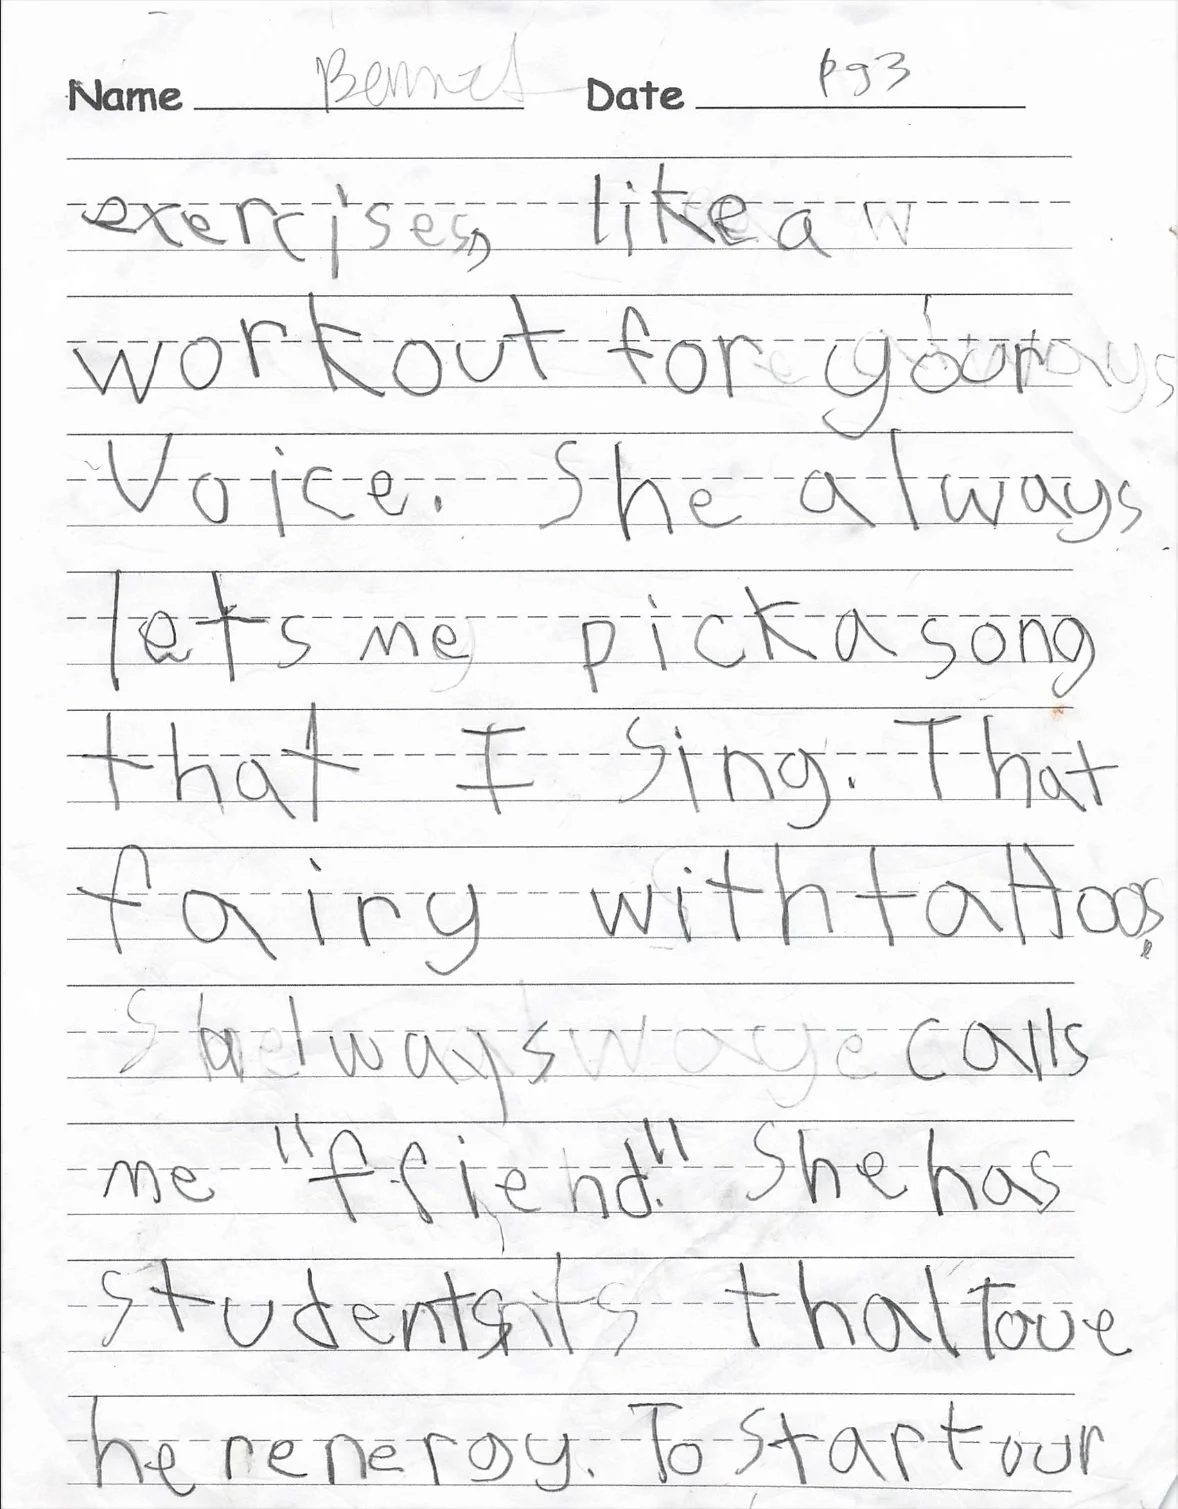 Name Bennet Date pg3
exercises, like a w
workout for your
Voice. She always
lets me pick a song
that I Sing. That
fairy with tattoos,
always calls
me "ffiend." She has
students that love
her energy. To start our